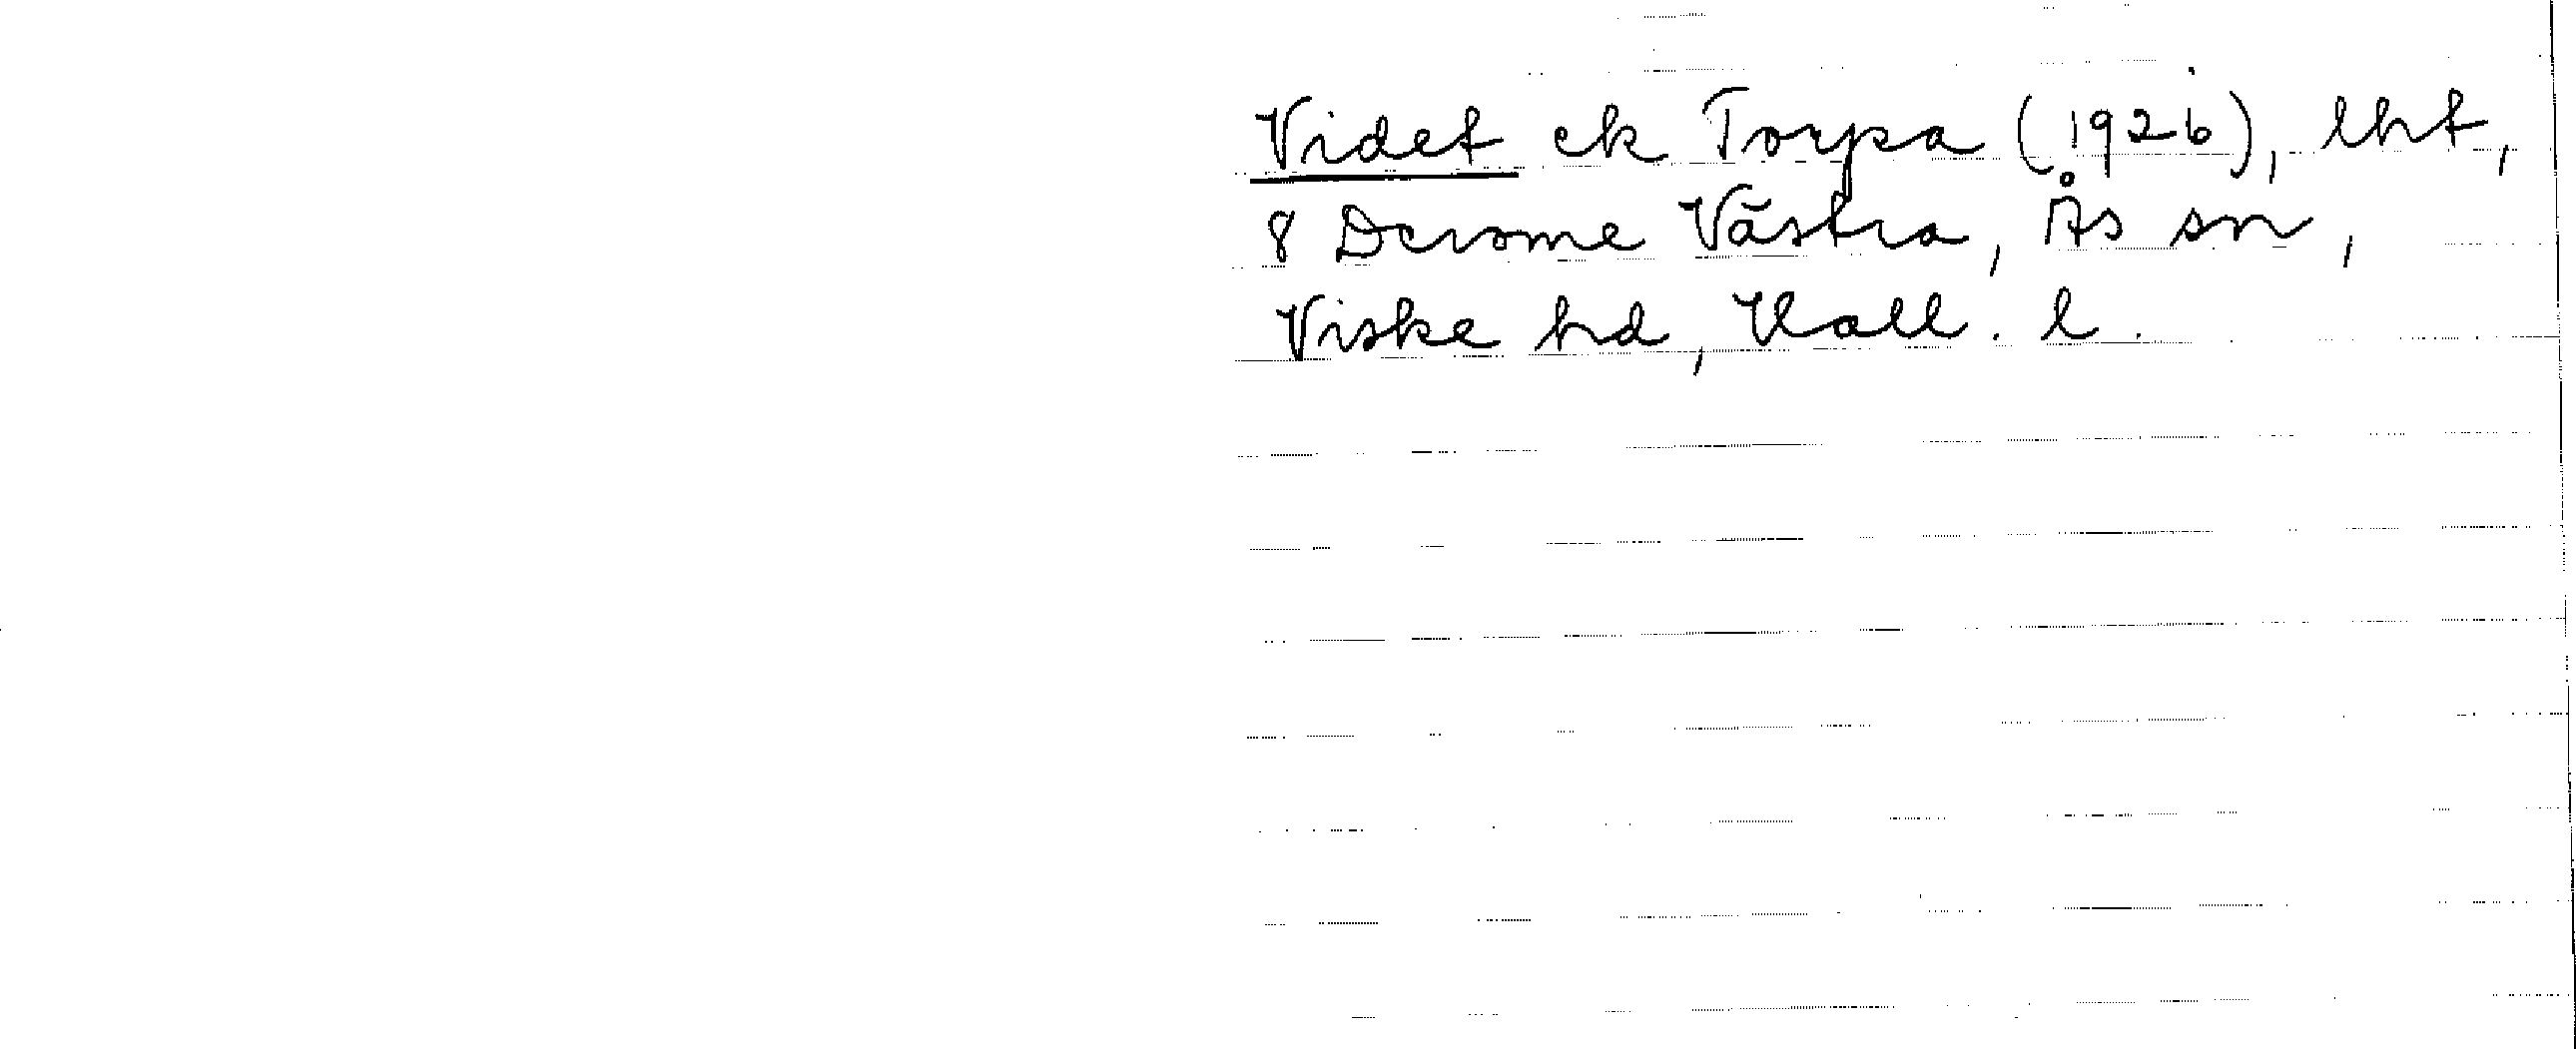 Videt ek Torpa (1926), lht,
8 Derome Västra, Ås sn,
Viske hd, Hall. l.